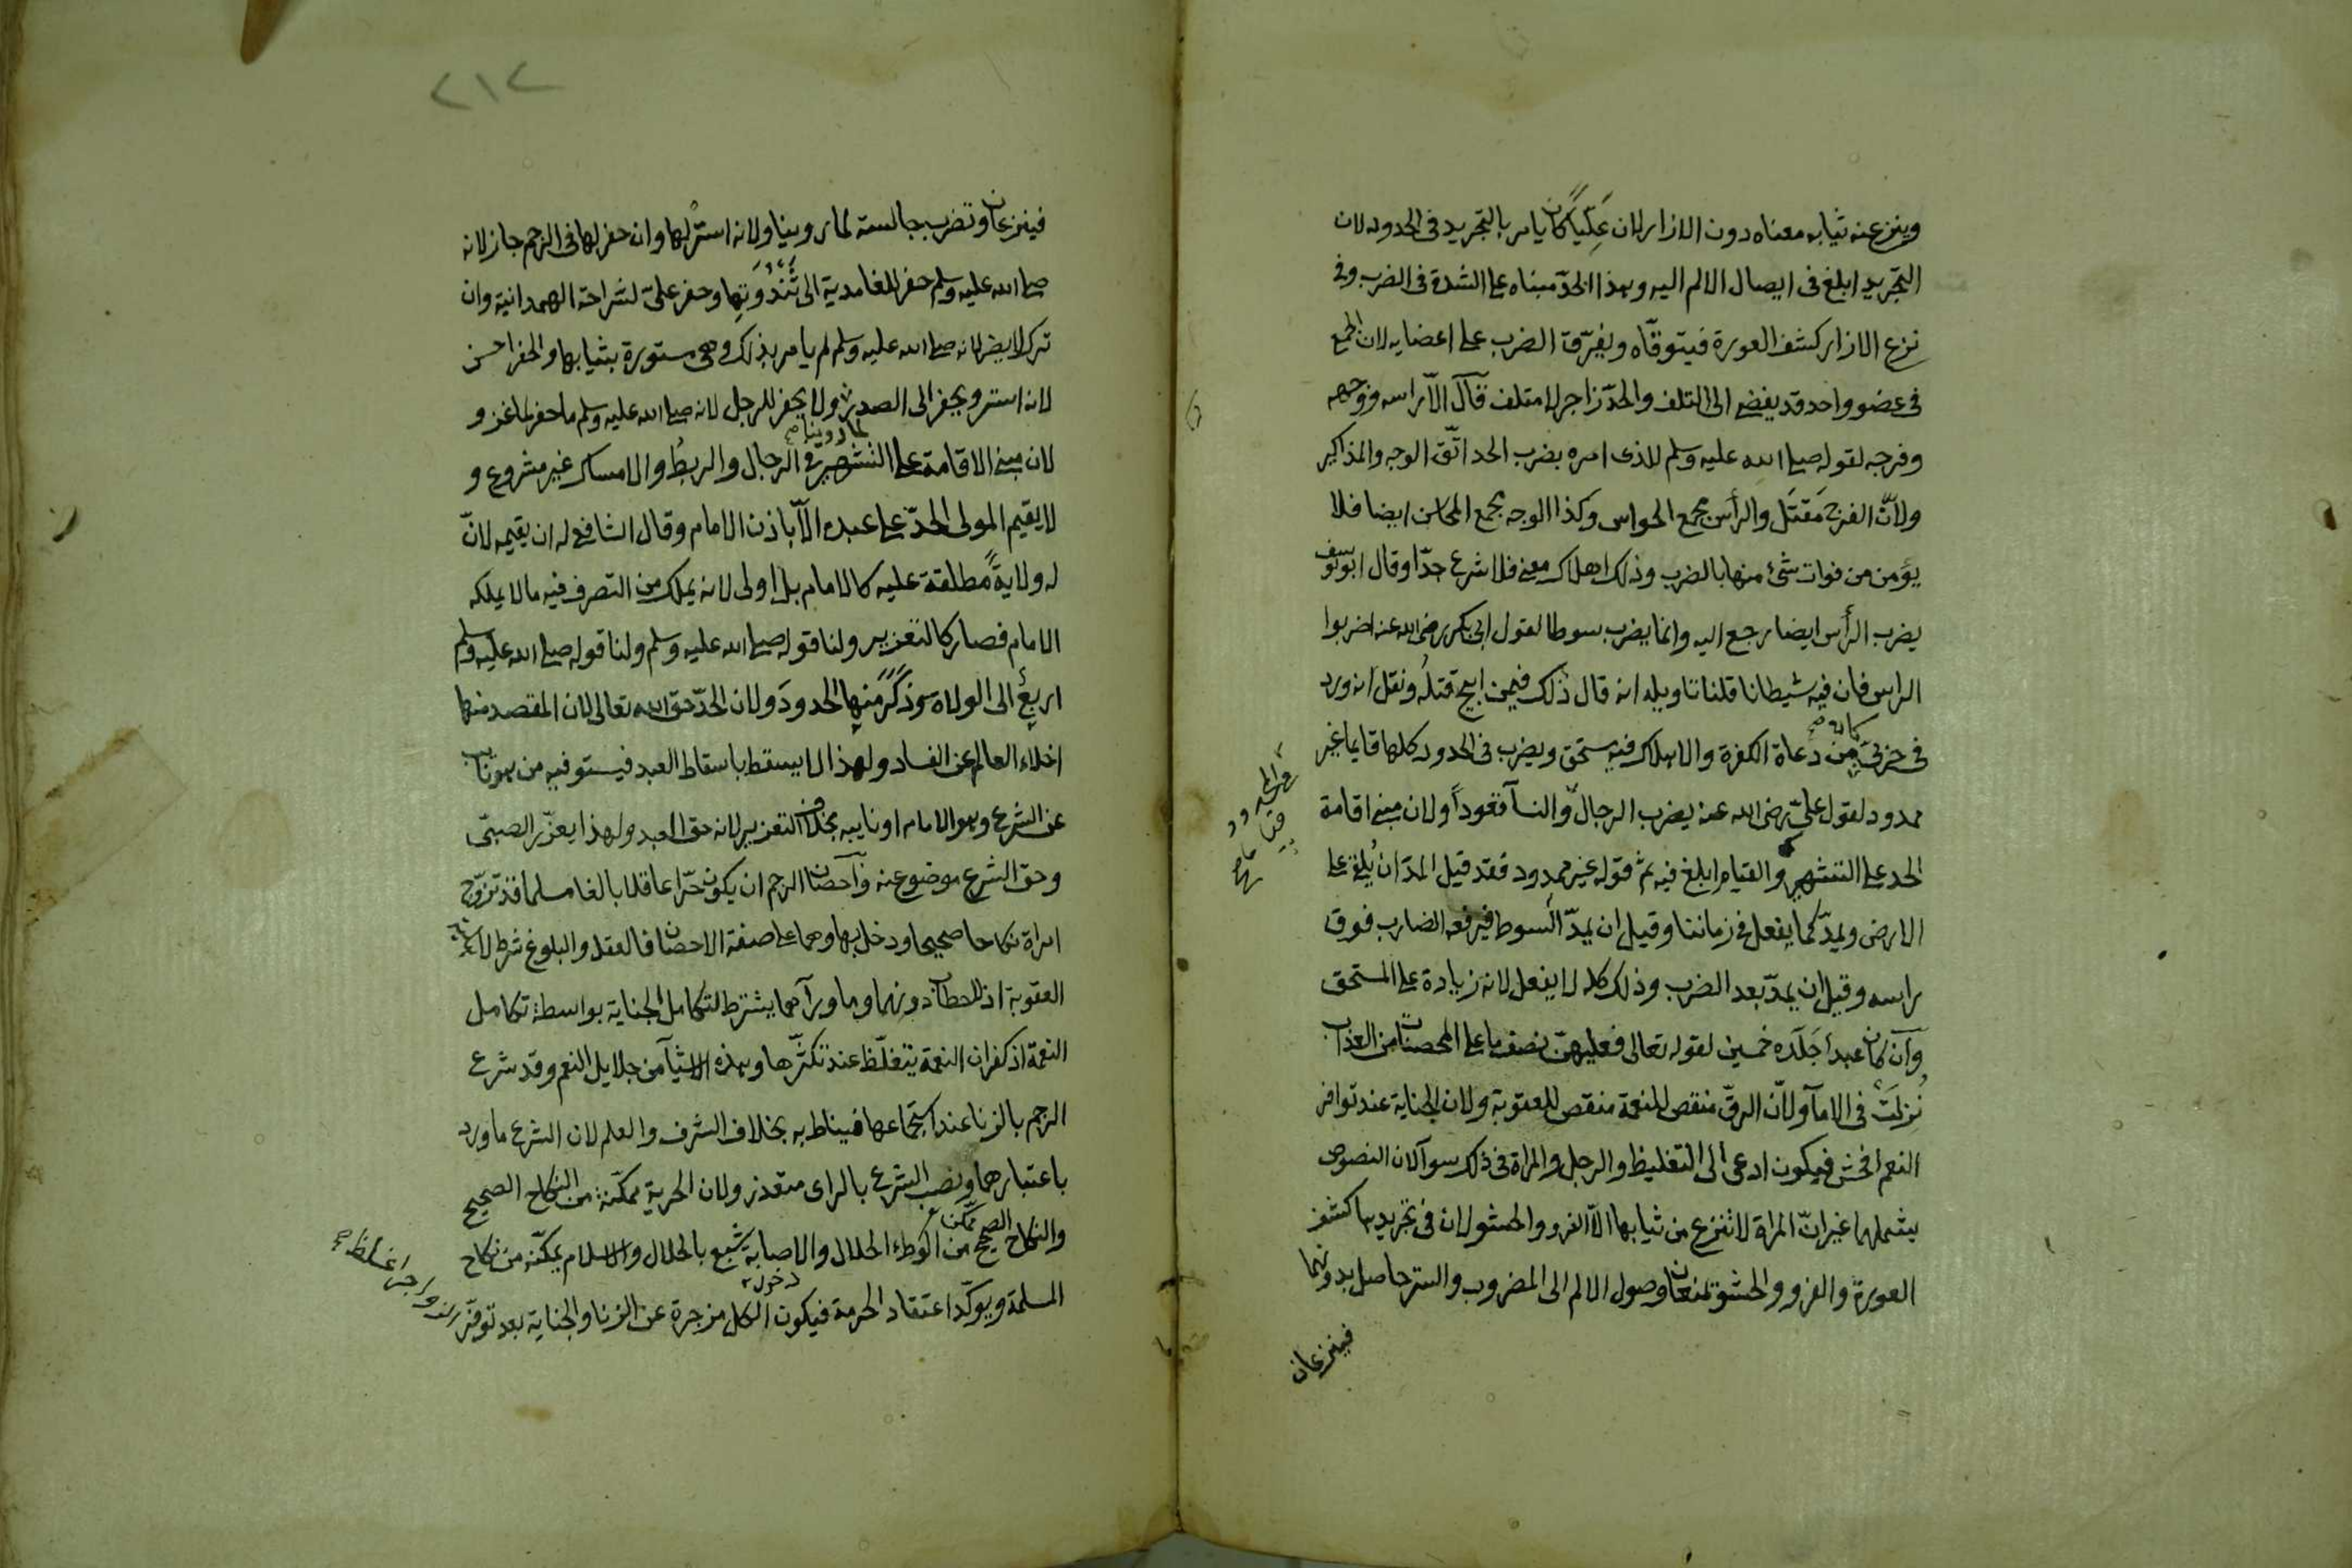 وينزع عنه ثيابه معناه دون الازار لان عليّا كان يامر بالتجريد فى الحدود لان
التجريد ابلغ فى ايصال الالم اليه وهذا الحدّ مبناه على الشدة فى الضرب وفى
نزع الازار كشف العورة فيتوقّاه ويفرّق الضرب على اعضايه لان الجمع
فى عضو واحد قد يفضى الى التلف والحدّ زاجر لا متلف قال الّا راسه ووجهه
وفرجه لقوله صلى الله عليه وسلم للذى امره بضرب الحد اتّق الوجه والمذاكير
ولانّ الفرج مَقتَل والرأس مجمع الحواس وكذا الوجه مجمع المحاسن ايضا فلا
يؤمن من فوات شئ منها بالضرب وذلك اهلاك معنى فلا شرع حدّا وقال ابو يوسف
يضرب الرأس ايضا رجع اليه وانما يضرب سوطا لقول ابى بكر رضى الله عنه اضربوا
الراس فان فيه شيطانا قلنا تاويله انه قال ذلك فيمن ابيح قتله ونقل انه ورد
فى حربى كان من دعاة الكفرة والاهلاك فيه مستحق ويضرب فى الحدود كلها قايما غير
ممدود لقول علىّ رضى الله عنه يضرب الرجال والنسآ قعوداً ولان مبنى اقامة
الحد على التشهير والقيام ابلغ فيه ثم قوله غير ممدود فقد قيل المدّ ان يُلقى على
الارض ويمدّ كما يفعل فى زماننا وقيل ان يمدّ السوط فيرفعه الضارب فوق
راسه وقيل ان يمدّ بعد الضرب وذلك كله لا يفعل لانه زيادة على المستحق
وان كان عبداً جَلَده خمسين لقوله تعالى فعليهنّ نصف ما على المحصنات من العذاب
نُزلَتْ فى الامآ ولانّ الرقّ منقص للنعمة منقص للعقوبة ولان الجناية عند توافر
النعم افحش فيكون ادعى الى التغليظ والرجل والمراة فى ذلك سوآ لان النصوص
يشملهما غير انّ المراة لا تنزع من ثيابها الّا الفرو والحشو لان فى تجريدها كشف
العورة والفرو والحشو تمنعان وصول الالم الى المضروب والستر حاصل بدونهما
فينزعان
فينزعان وتضرب جالسة لما روينا ولانه استر لها وان حفر لها فى الرجم جاز لانه
صلى الله عليه وسلم حفر للغامدية الى ثَنْدُوَتِها وحفر علىّ لشراحة الهمدانية وان
ترك لا يضر لانه صلى الله عليه وسلم لم يامر بذلك وهى مستورة بثيابها والحفر احسن
لانه استر ويحفر الى الصدر لما روينا صح ولا يحفر للرجل لانه صلى الله عليه وسلم ما حفر لماعز و
لان مبنى الاقامة على التشهير فى الرجال والربطُ والامساك غير مشروع و
لا يقيم المولى الحدّ على عبده الّا باذن الامام وقال الشافعى له ان يقيمه لانّ
له ولايةً مطلقة عليه كالامام بل اولى لانه يملك من التصرف فيه ما لا يملكه
الامام فصار كالتعزير ولنا قوله صلى الله عليه وسلم ولنا قوله صلى الله عليه وسلم
اربع الى الولاة وذكر منها الحدود ولان الحدّ حق الله تعالى لان المقصد منها
اخلاء العالم عن الفساد ولهذا لا يسقط باسقاط العبد فيستوفيه من هو نايب
عن الشرع وهو الامام او نايبه بخلاف التعزير لانه حق العبد ولهذا يعزّر الصبىّ
وحق الشرع موضوع عنه واحصان الرجم ان يكون حرّا عاقلا بالغا مسلما قد تزوّج
امراة نكاحا صحيحا ودخل بها وهما على صفة الاحصان فالعقل والبلوغ شرط لاهلية
العقوبة اذ لا خطاب دونهما وما ورآهما يشترط لتكامل الجناية بواسطة تكامل
النعمة اذ كفران النعمة يتغلّظ عند تكثّرها وهذه الاشيآ من جلايل النعم وقد شرع
الرجم بالزنا عند استجماعها فيناط به بخلاف الشرف والعلم لان الشرع ما ورد
باعتبارهما ونصب الشرع بالراى متعذر ولان الحرية ممكّنة من النكاح الصحيح
والنكاح الصحيح ممكن من الوطء الحلال والاصابة شبع بالحلال والاسلام يمكّنه من نكاح
المسلمة ويوكّد اعتقاد الحرمة فيكون الكل مزجرة عن الزنا والجناية بعد توفّر
الزواجر اغلظ صح
٢١٢